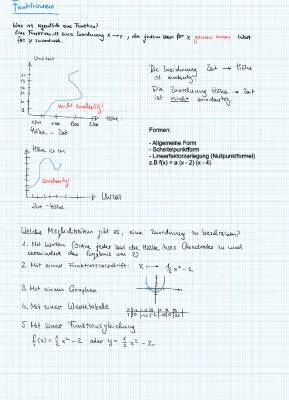 Funktionen
Was ist eigentlich eine Funktion?
Eine Funktion ist eine Zuordnung x → y, die jedem Wert für x genau einen Wert
für y zuordnet.
Uhrzeit
nicht eindeutig!
Höhe - Zeit
Höhe
Die Zuordnung Zeit → Höhe
ist eindeutig
Die Zuordnung Höhe → Zeit
ist nicht eindeutig.
Höhe in m
eindeutig!
Uhrzeit
Zeit - Höhe
Formen:
- Allgemeine Form
- Scheitelpunktform
- Linearfaktorzerlegung (Nullpunktformel)
z.B f(x) = a (x - 2) (x - 4)
Welche Möglichkeiten gibt es, eine Zuordnung zu beschreiben?
1. Mit Worten (Bilde jeder Zahl die Hälfte ihres Quadrates zu und
vermindere das Ergebnis um 2)
2. Mit einer Funktionsvorschrift: x ↦ 1/2 x² - 2
3. Mit einem Graphen
4. Mit einer Wertetabelle
5. Mit einer Funktionsgleichung
f(x) = 1/2 x² - 2 oder y = 1/2 x² - 2